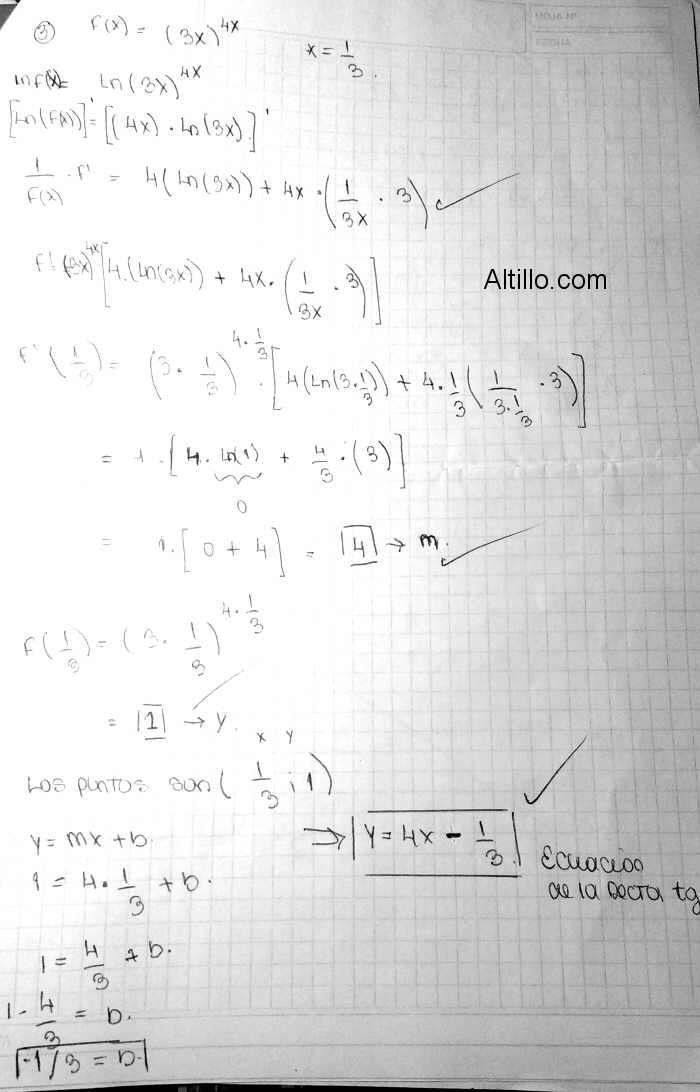 HOJA Nº
FECHA
③ F(x) = (3x)^4x x = 1/3.
lnf(x)= Ln(3x)^4x
[Ln(F(x))]' = [(4x) · Ln(3x).]'
1/F(x) · F' = 4(Ln(3x)) + 4x · (1/3x · 3)
F' = (3x)^4x [4.(Ln(3x)) + 4x. (1/3x · 3)]
Altillo.com
F'(1/3) = (3 · 1/3)^4·1/3 · [4(Ln(3·1/3)) + 4·1/3 (1/3·1/3 · 3)]
= 1 · [4 · Ln(1) + 4/3 · (3)]
0
= 1. [0 + 4] = 4 → m.
F(1/3) = (3 · 1/3)^4·1/3
= 1 → y.
x y
Los puntos son (1/3 ; 1)
y = mx + b.
⇒ y = 4x - 1/3.
Ecuación
de la recta tg
1 = 4 · 1/3 + b.
1 = 4/3 + b.
1 - 4/3 = b.
-1/3 = b.